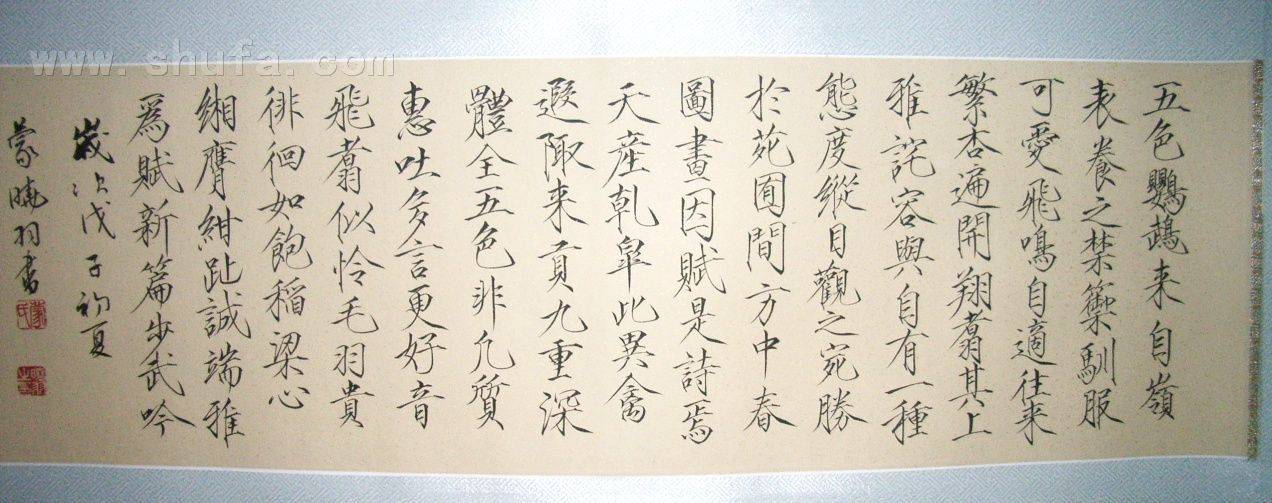 五色鸚鵡来自嶺
表養之禁籞馴服
可愛飛鳴自適往来
繁杏遍開翔翥其上
雅詫容與自有一種
態度縱目觀之宛勝
於苑囿間方中春
圖畫因賦是詩焉
天產乾皐此異禽
遐陬来貢九重深
體全五色非凡質
惠吐多言更好音
飛翥似怜毛羽貴
徘徊如飽稻梁心
緗膺紺趾誠端雅
爲賦新篇步武吟
歲次戊子初夏
蒙曉羽書
www.shufa.com